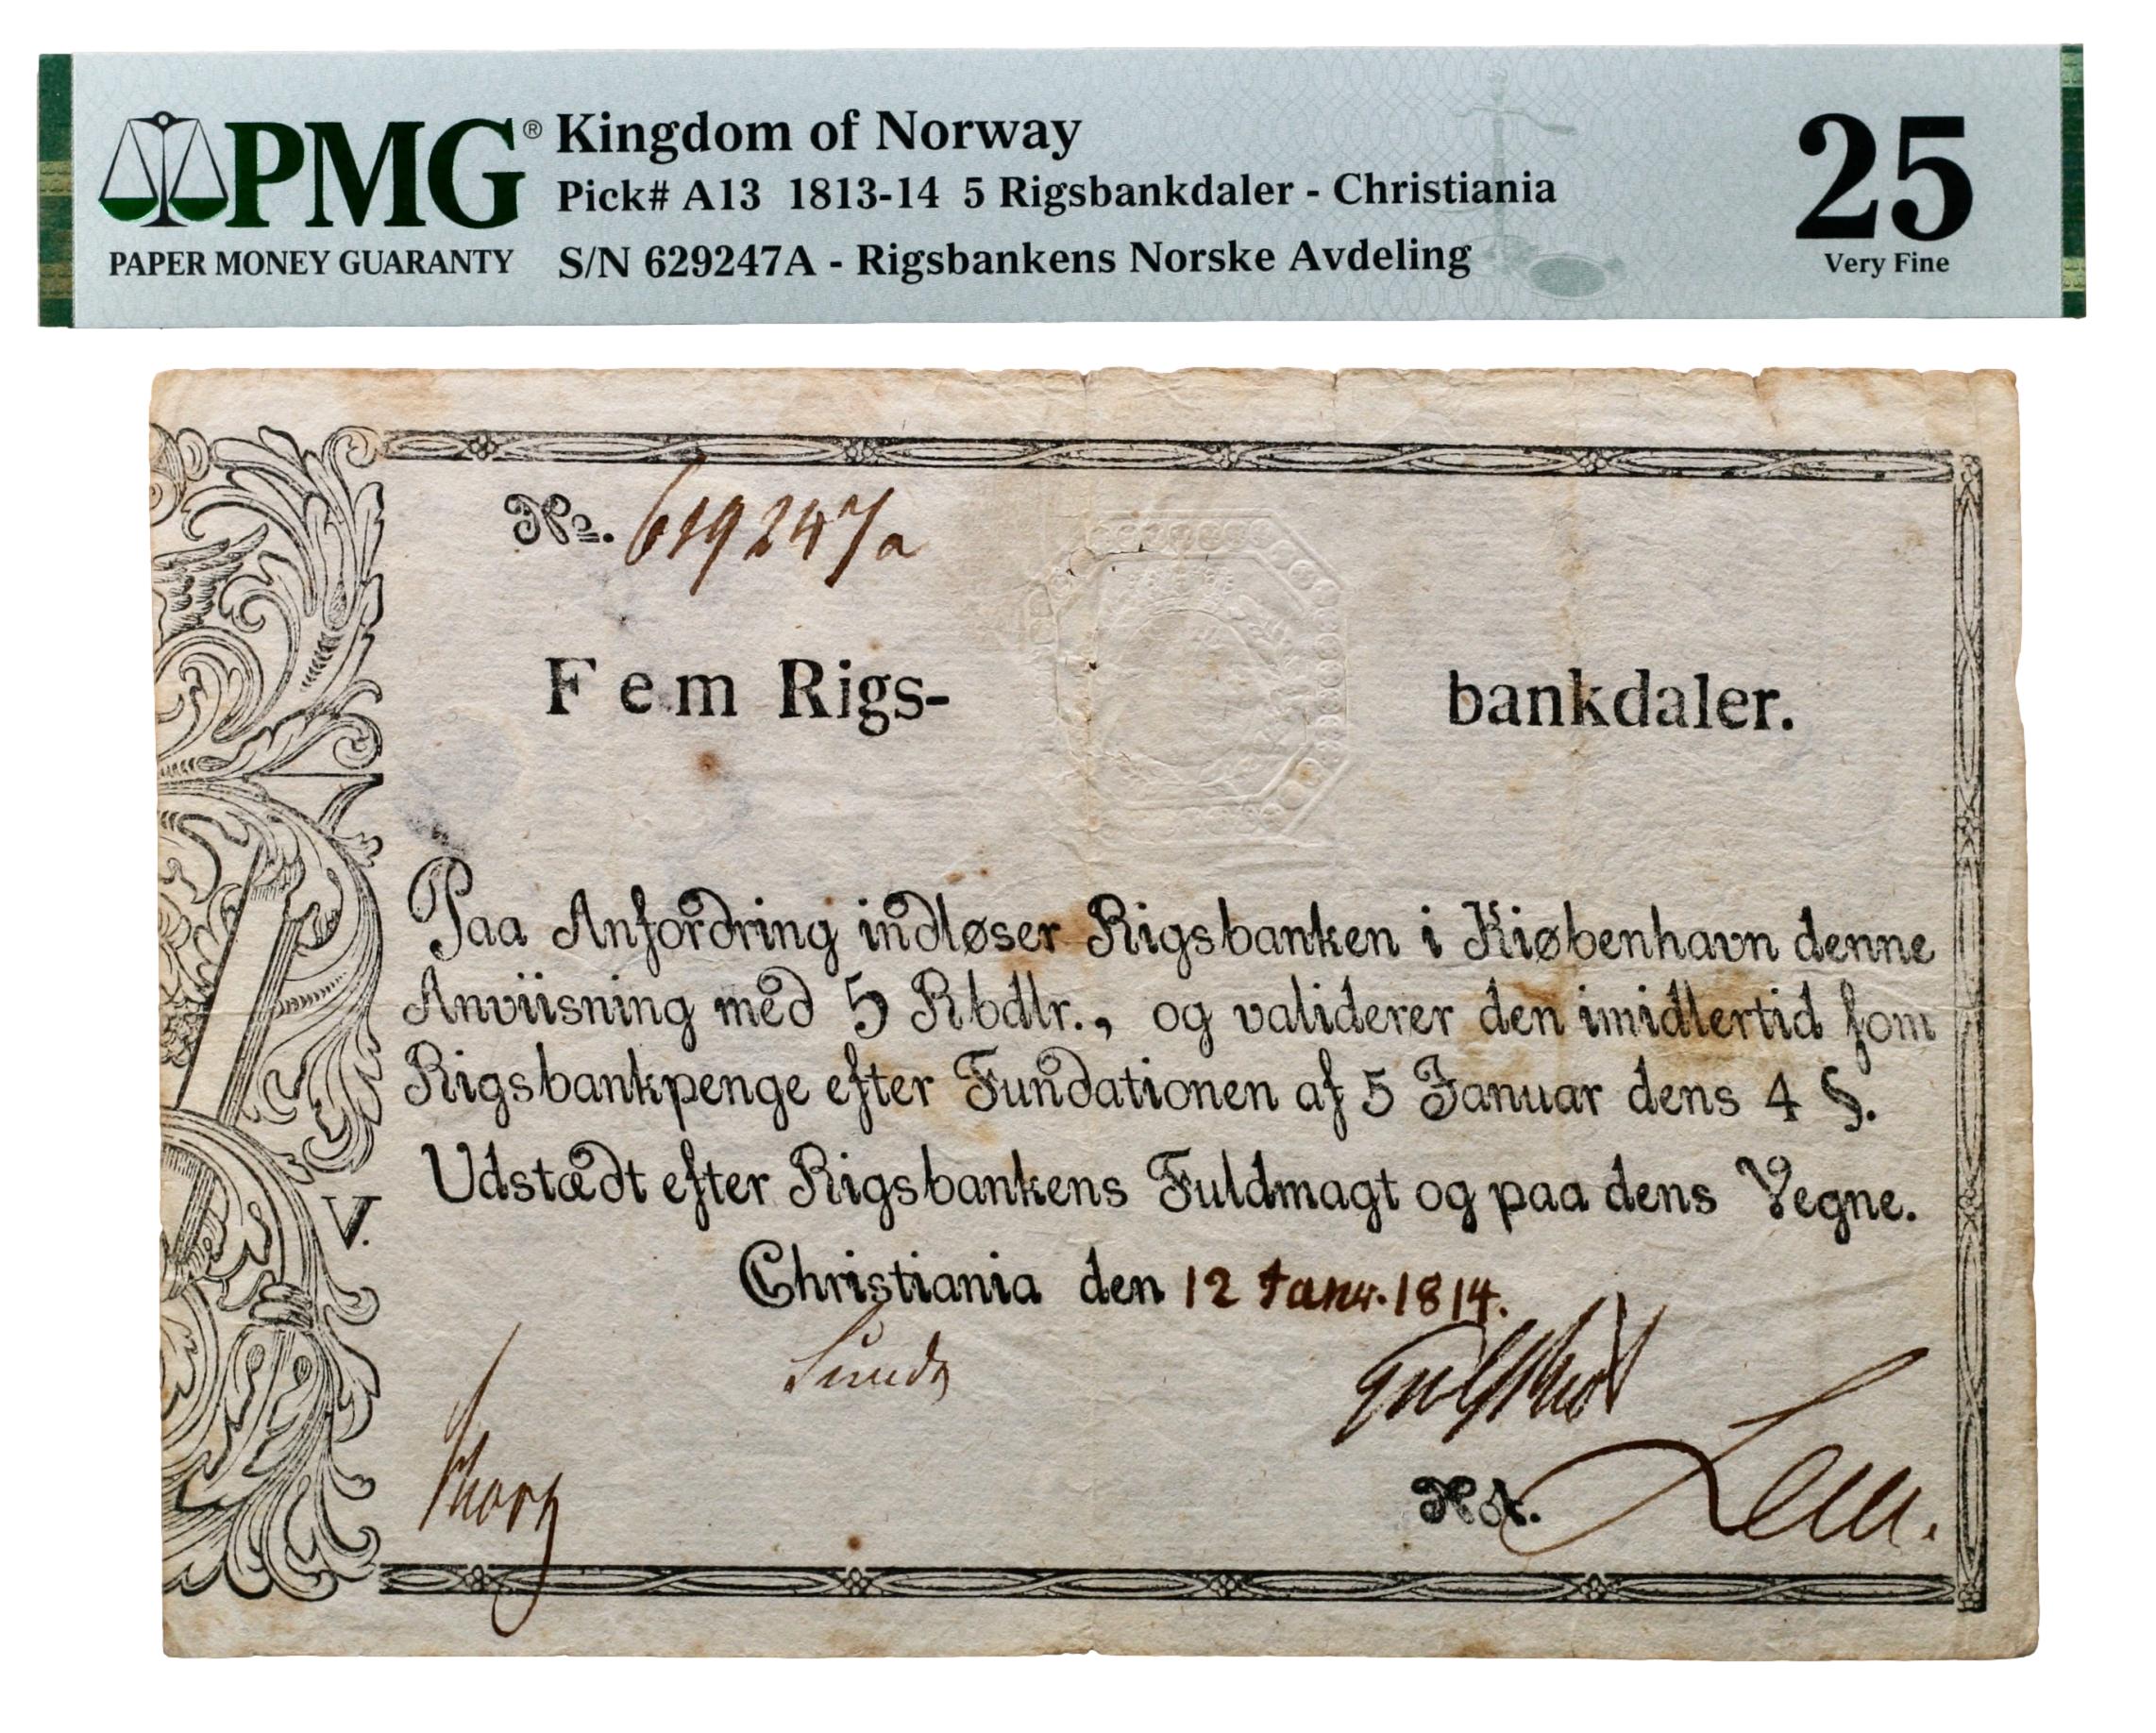 PMG® Kingdom of Norway
Pick# A13 1813-14 5 Rigsbankdaler - Christiania
PAPER MONEY GUARANTY
S/N 629247A - Rigsbankens Norske Avdeling
25
Very Fine
No. 629247a
Fem Rigs- bankdaler.
Paa Anfordring indløser Rigsbanken i Kiøbenhavn denne
Anviisning med 5 Rbdlr., og validerer den imidlertid som
Rigsbankpenge efter Fundationen af 5 Januar dens 4 §.
Udstædt efter Rigsbankens Fuldmagt og paa dens Vegne.
V.
Christiania den 12 Janr. 1814.